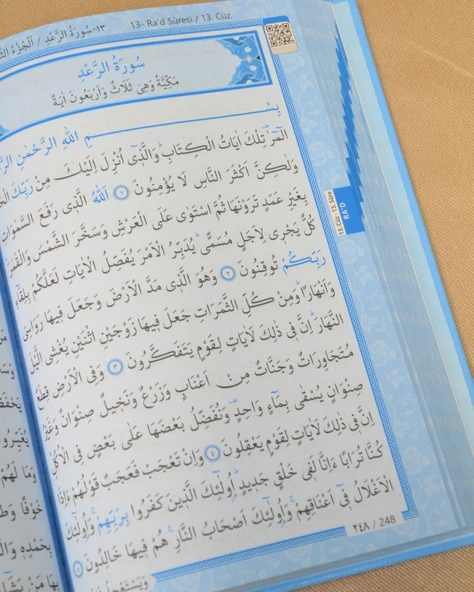 ١٣-سُورَةُ الرَّعْدِ / اَلْجُزْءُ
13- Ra'd Sûresi / 13. Cüz
سُورَةُ الرَّعْدِ
مَكِّيَّةٌ وَهِيَ ثَلَاثٌ وَاَرْبَعُونَ اٰيَةً
بِسْمِ اللّٰهِ الرَّحْمٰنِ
الٓمٓرٰ تِلْكَ اٰيَاتُ الْكِتَابِ وَالَّذٖٓي اُنْزِلَ اِلَيْكَ مِنْ رَبِّكَ
وَلٰكِنَّ اَكْثَرَ النَّاسِ لَا يُؤْمِنُونَ ١ اَللّٰهُ الَّذٖي رَفَعَ السَّمٰوَاتِ
بِغَيْرِ عَمَدٍ تَرَوْنَهَا ثُمَّ اسْتَوٰى عَلَى الْعَرْشِ وَسَخَّرَ الشَّمْسَ وَالْقَمَرَ
كُلٌّ يَجْرٖي لِاَجَلٍ مُسَمًّى يُدَبِّرُ الْاَمْرَ يُفَصِّلُ الْاٰيَاتِ لَعَلَّكُمْ بِلِقَٓاءِ
رَبِّكُمْ تُوقِنُونَ ٢ وَهُوَ الَّذٖي مَدَّ الْاَرْضَ وَجَعَلَ فٖيهَا رَوَاسِيَ
وَاَنْهَارًا وَمِنْ كُلِّ الثَّمَرَاتِ جَعَلَ فٖيهَا زَوْجَيْنِ اثْنَيْنِ يُغْشِي الَّيْلَ
النَّهَارَ اِنَّ فٖي ذٰلِكَ لَاٰيَاتٍ لِقَوْمٍ يَتَفَكَّرُونَ ٣ وَفِي الْاَرْضِ قِطَعٌ
مُتَجَاوِرَاتٌ وَجَنَّاتٌ مِنْ اَعْنَابٍ وَزَرْعٌ وَنَخٖيلٌ صِنْوَانٌ وَغَيْرُ
صِنْوَانٍ يُسْقٰى بِمَٓاءٍ وَاحِدٍ وَنُفَضِّلُ بَعْضَهَا عَلٰى بَعْضٍ فِي الْاُكُلِ
اِنَّ فٖي ذٰلِكَ لَاٰيَاتٍ لِقَوْمٍ يَعْقِلُونَ ٤ وَاِنْ تَعْجَبْ فَعَجَبٌ قَوْلُهُمْ ءَاِذَا
كُنَّا تُرَابًا ءَاِنَّا لَفٖي خَلْقٍ جَدٖيدٍ اُو۬لٰٓئِكَ الَّذٖينَ كَفَرُوا بِرَبِّهِمْ وَاُو۬لٰٓئِكَ
الْاَغْلَالُ فٖٓي اَعْنَاقِهِمْ وَاُو۬لٰٓئِكَ اَصْحَابُ النَّارِ هُمْ فٖيهَا خَالِدُونَ ٥
٢٤٨ / 248
13. Cüz - 13. Sûre
RA'D